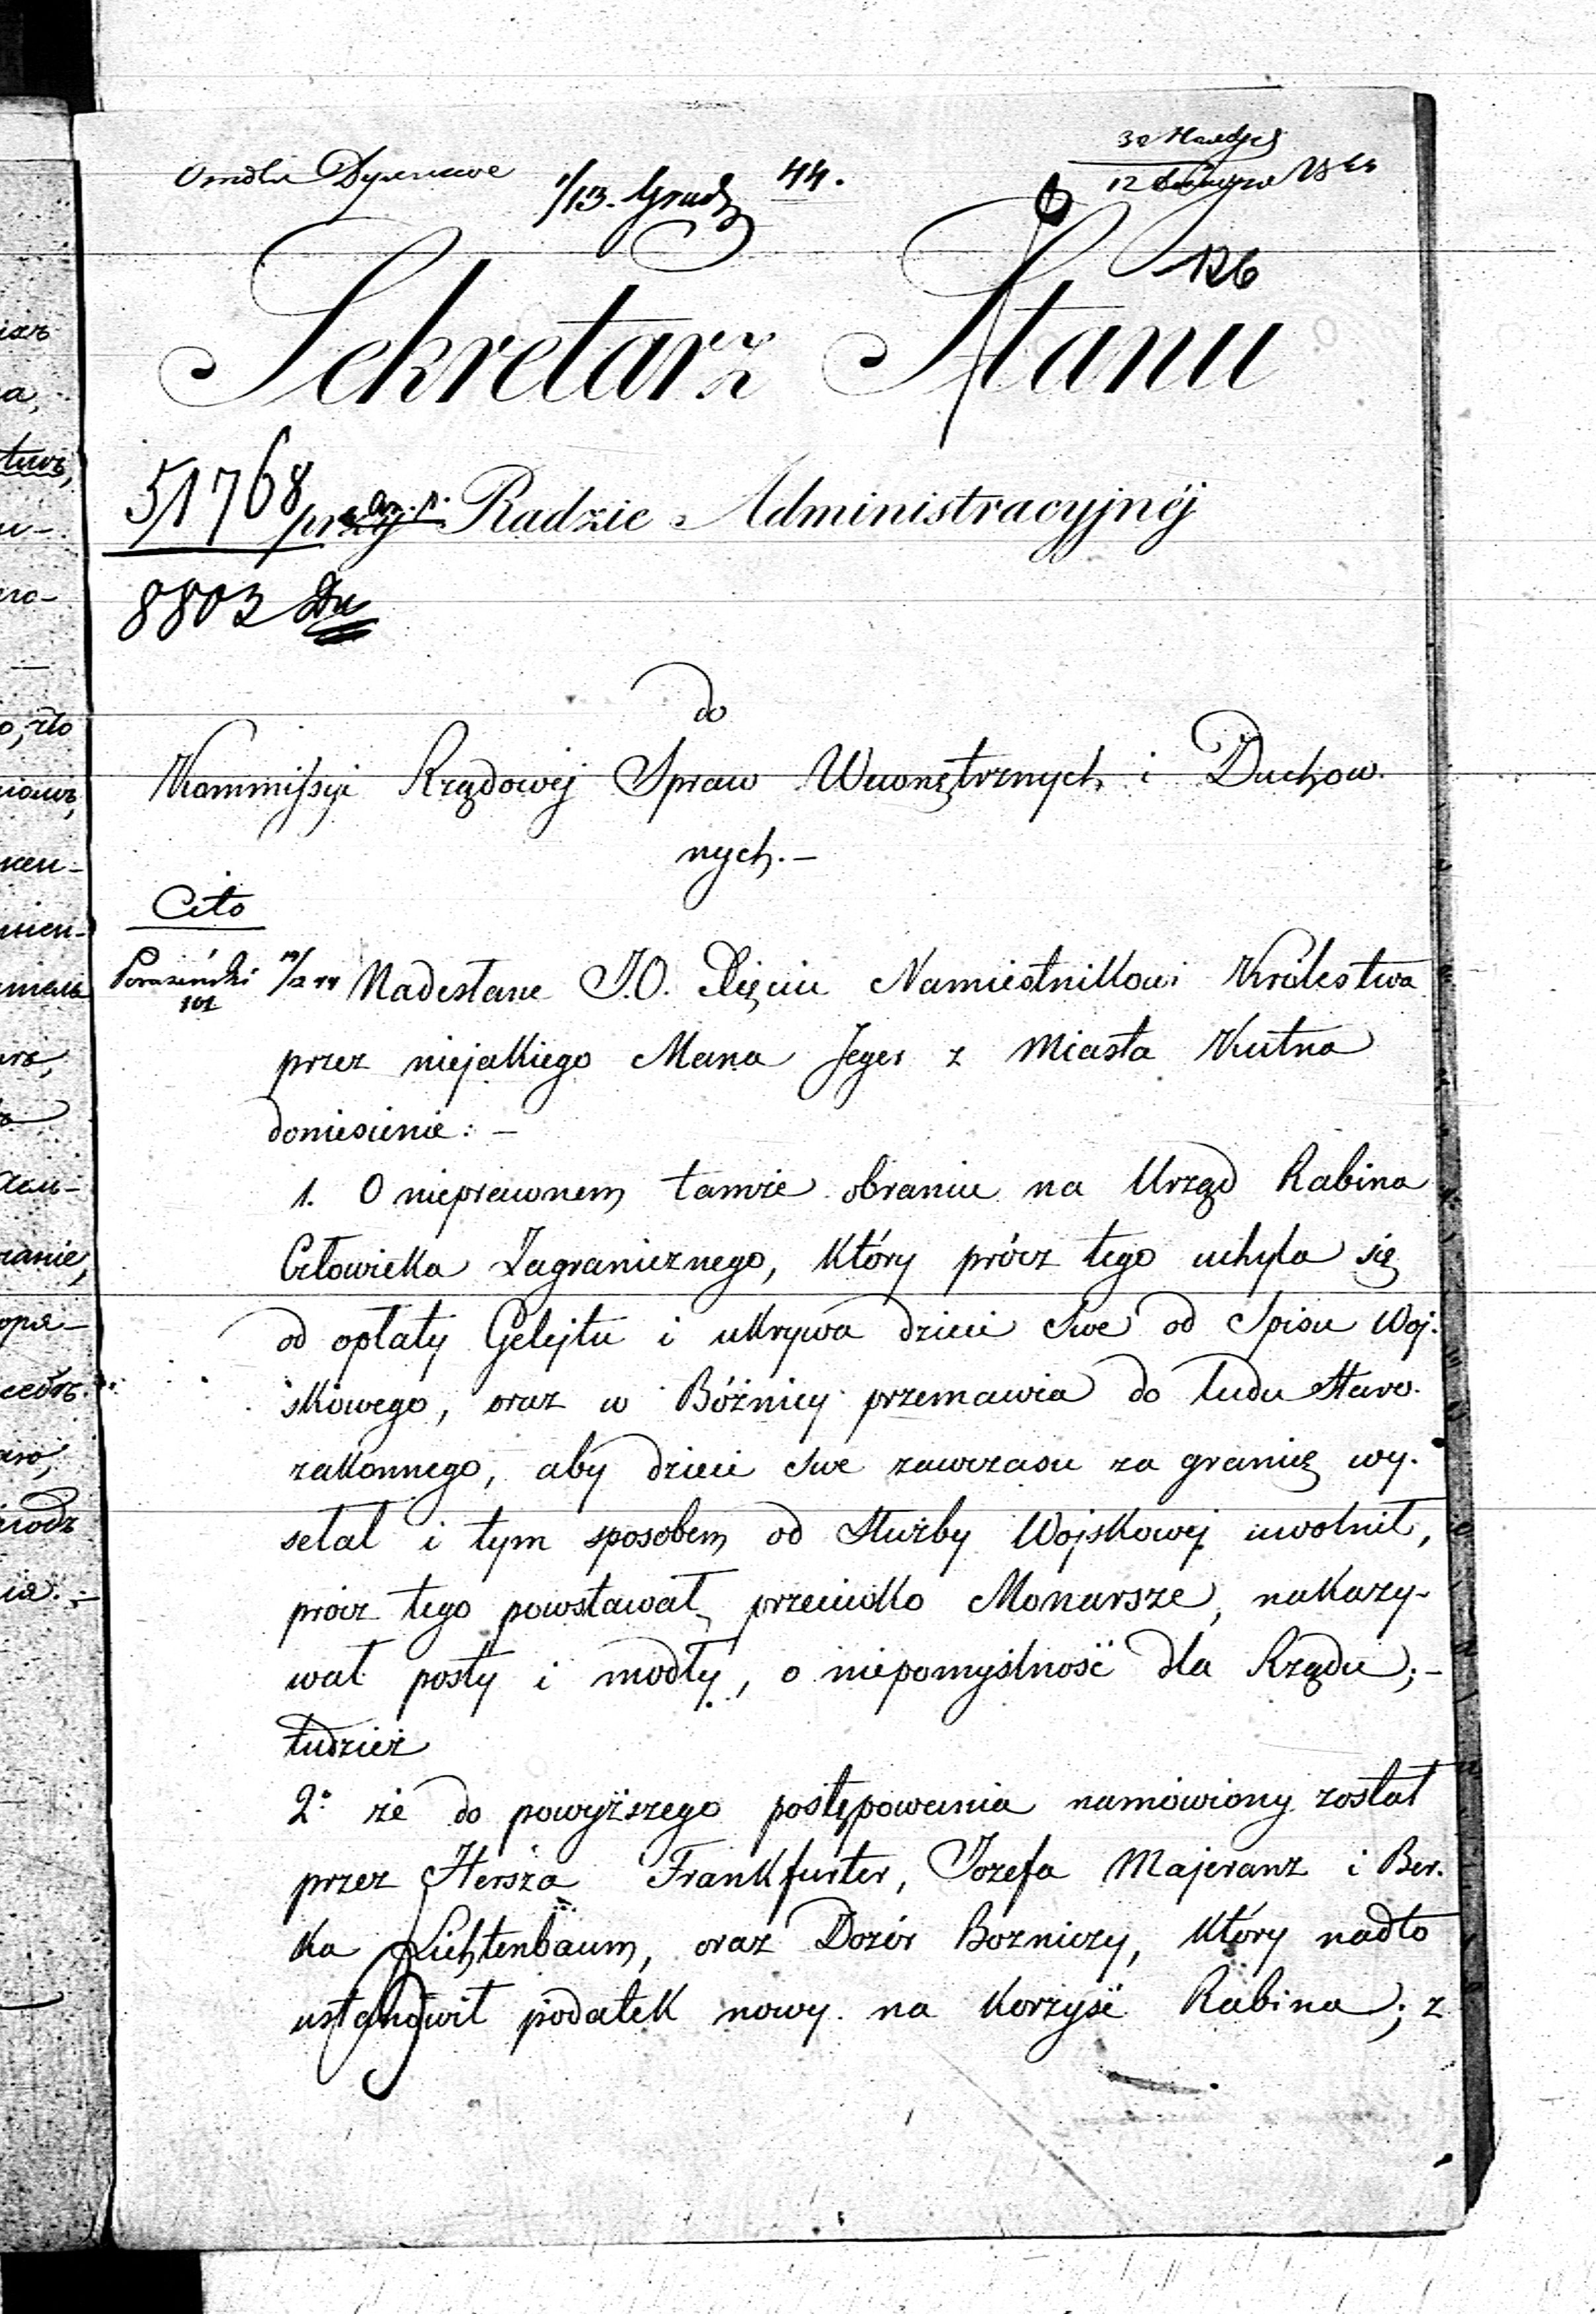 1/13. Grudz 44.
126
Sekretarz Stanu
51768
przy Radzie Administracyjnéj
8803
do
Kommissyi Rządowéj Spraw Wewnętrznych i Duchow-
nych. —
Cito
Nadesłane J.O. Xięciu Namiestnikowi Królestwa
przez niejakiego Mana Jeger z Miasta Kutna
doniesienie: —
1. O nieprawnem tamże obraniu na Urząd Rabina
Człowieka Zagranicznego, który prócz tego uchyla się
od opłaty Gelejtu i ukrywa dzieci swe od Spisu Woj-
skowego, oraz w Bóżnicy przemawia do ludu Staro-
zakonnego, aby dzieci swe zawczasu za granicę wy-
sełał i tym sposobem od Służby Wojskowej uwolnił,
prócz tego powstawał przeciwko Monarsze, nakazy-
wał posty i modły, o niepomyślność dla Rządu; —
tudzież
2° że do powyższego postępowania namówiony został
przez Hersza Frankfurter, Jozefa Majeranz i Ber-
ka Lichtenbaum, oraz Dozór Bozniczy, który nadto
ustanowił podatek nowy na korzyść Rabina; z